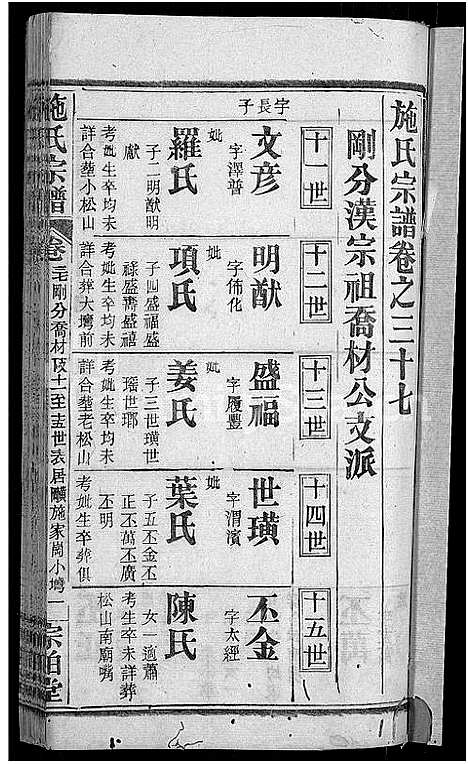 施氏宗譜卷之三十七
剛分漢宗祖喬材公支派
十一世
十二世
十三世
十四世
十五世
字長子
文彦
字澤普
妣
羅氏
子二明猷明
獻
考妣生卒均未
詳合塟小松山
明猷
字佈化
妣
項氏
子四盛福盛
祿盛壽盛禧
考妣生卒均未
詳合葬大塆前
盛福
字履豐
妣
姜氏
子三世璜世
瑤世瑯
考妣生卒均未
詳合塟老松山
世璜
字渭濱
妣
葉氏
子五丕金丕
正丕萬丕廣
丕明
考妣生卒葬俱
丕金
字太經
陳氏
女一適蕭
考生卒未詳葬
松山南廟嘴
施氏宗譜
卷三七
剛分喬材及十一至十五世表居
施家崗小塆
一